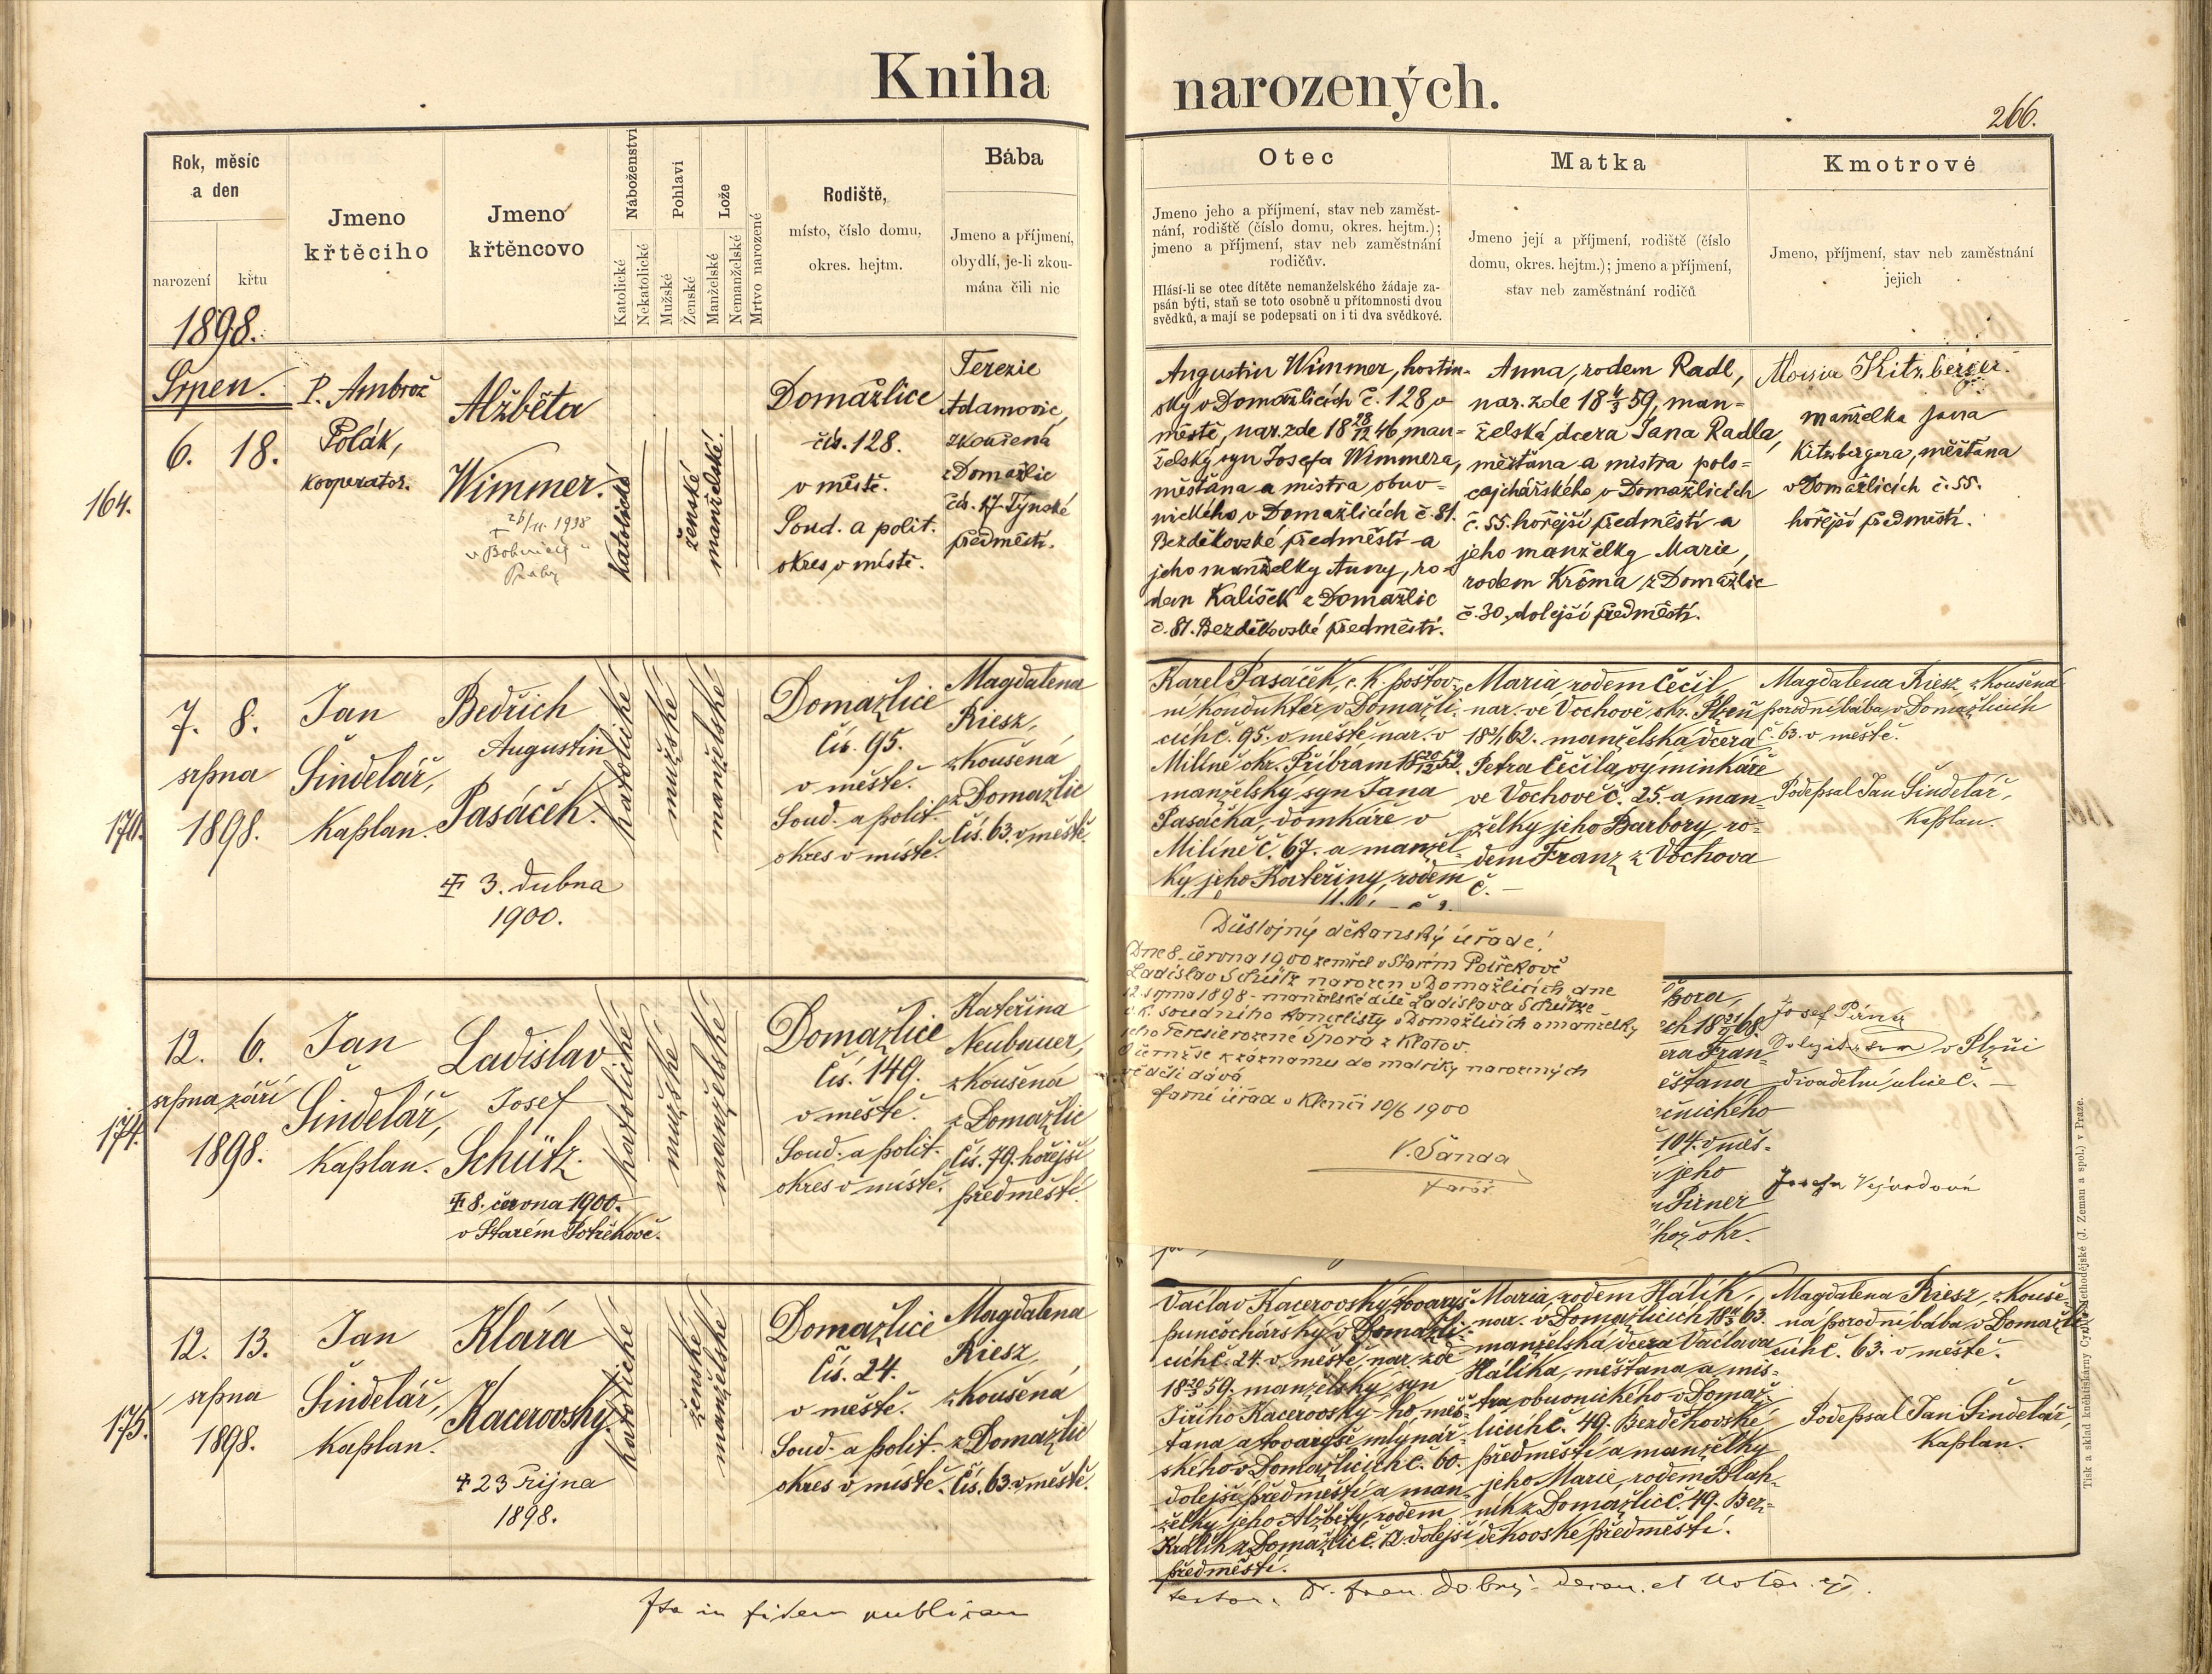 Kniha narozených.
266.
Rok, měsíc
a den
narození
křtu
Jmeno
křtěcího
Jmeno
křtěncovo
Náboženství
Katolické
Nekatolické
Pohlaví
Mužské
Ženské
Lože
Manželské
Nemanželské
Mrtvo narozené
Rodiště,
místo, číslo domu,
okres. hejtm.
Bába
Jmeno a příjmení,
obydlí, je-li zkou-
mána čili nic
Otec
Jmeno jeho a příjmení, stav neb zaměst-
nání, rodiště (číslo domu, okres. hejtm.);
jmeno a příjmení, stav neb zaměstnání
rodičův.
Hlásí-li se otec dítěte nemanželského žádaje za-
psán býti, staň se toto osobně u přítomnosti dvou
svědků, a mají se podepsati on i ti dva svědkové.
Matka
Jmeno její a příjmení, rodiště (číslo
domu, okres. hejtm.); jmeno a příjmení,
stav neb zaměstnání rodičů
Kmotrové
Jmeno, příjmení, stav neb zaměstnání
jejich
1898.
Srpen.
164.
6. 18.
P. Ambrož
Polák,
kooperator.
Alžběta
Wimmer.
26/11. 1938
v Bohnicích u
Prahy
katolické
ženské
manželské.
Domažlice
čís. 128.
v městě.
Soud. a polit.
okres v místě.
Terezie
Adamovic,
zkoušená
z Domažlic
čís. 17 Týnské
předměstí.
Augustin Wimmer, hostin-
ský v Domažlicích č. 128 v
městě, nar. zde 18 28/12 46, man-
želský syn Josefa Wimmera,
měšťana a mistra obuv-
nického v Domažlicích č. 81.
Bezděkovské předměstí a
jeho manželky Anny, ro-
dem Kališek z Domažlic
č. 81. Bezděkovské předměstí.
Anna, rodem Radl,
nar. zde 18 4/3 59, man-
želská dcera Jana Radla,
měšťana a mistra polo-
cajchářského v Domažlicích
č. 55. hořejší předměstí a
jeho manželky Marie,
rodem Krčma z Domažlic
č. 30. dolejší předměstí.
Aloisie Kitzberger.
manželka Jana
Kitzbergera, měšťana
v Domažlicích č. 55.
hořejší předměstí.
170.
7. 8.
srpna
1898.
Jan
Šindelář,
kaplan.
Bedřich
Augustin
Pasáček.
3. dubna
1900.
katolické
mužské
manželské
Domažlice
čís. 95.
v městě.
Soud. a polit.
okres v místě.
Magdalena
Riesz,
zkoušená
z Domažlic
čís. 63. v městě.
Karel Pasáček, c. k. poštov-
ní konduktér v Domažli-
cích č. 95. v městě nar. v
Milíně okr. Příbram
manželský syn Jana
Pasáčka, domkáře v
Milíně č. 67. a manžel-
ky jeho Kateřiny, rodem
Maria, rodem Čečil
nar. ve Vochově okr. Plzeň
62. manželská dcera
Petra Čečila, výminkáře
ve Vochově č. 25. a man-
želky jeho Barbory, ro-
dem Franz z Vochova
č. –
Magdalena Riesz, zkoušená
porodní bába v Domažlicích
č. 63. v městě.
Podepsal Jan Šindelář,
kaplan.
174.
12. 6.
srpna září
1898.
Jan
Šindelář,
kaplan.
Ladislav
Josef
Schütz.
8. června 1900.
v Starém Potřekově.
katolické
mužské
manželské
Domažlice
čís. 149.
v městě.
Soud. a polit.
okres v místě.
Kateřina
Neubauer,
zkoušená
z Domažlic
čís. 79. hořejší
předměstí.
Důstojný děkanský úřade!
Dne 8. června 1900 zemřel v Starém Potřekově
Ladislav Schütz narozen v Domažlicích dne
12. srpna 1898 – manželské dítě Ladislava Schütze
c. k. soudního kancelisty v Domažlicích a manželky
jeho Teresie rozené Špora z Klatov.
O čemž se k záznamu do matriky narozených
věděti dává
farní úřad v Klenčí 10/6 1900
V. Šanda
farář
pora,
ích 18 21/9 68.
era Fran-
ěšťana
čnického
104. v měs-
jeho
Pirner
hoz okr.
Josef Pirner
v Plzni
divadelní ulice č. –
Josefa Vejvodová
175.
12. 13.
srpna
1898.
Jan
Šindelář,
kaplan.
Klára
Kacerovský.
23 října
1898.
katolické
ženské
manželské
Domažlice
čís. 24.
v městě.
Soud. a polit.
okres v místě.
Magdalena
Riesz,
zkoušená
z Domažlic
čís. 63. v městě.
Václav Kacerovský, tovaryš
punčochářský v Domažli-
cích č. 24. v městě, nar. zde
59. manželský syn
Jiřího Kacerovsky-ho, měš-
ťana a tovaryše mlynář-
ského v Domažlicích č. 60.
dolejší předměstí a man-
želky jeho Alžběty, rodem
Králík z Domažlic č. 12. dolejší
předměstí.
Maria, rodem Hálík,
nar. v Domažlicích 63.
manželská dcera Václava
Hálíka, měšťana a mis-
tra obuvnického v Domaž-
licích č. 49. Bezděkovské
předměstí a manželky
jeho Marie, rodem Blah-
ník z Domažlic č. 49. Bez-
děkovské předměstí.
Magdalena Riesz, zkouše-
ná porodní bába v Domažli-
cích č. 63. v městě.
Podepsal Jan Šindelář,
kaplan.
Ita in fidem publicam
testor. Dr. Fran. Dobrý
Tisk a sklad knihtiskárny Cyrillo-Methodějské (J. Zeman a spol.) v Praze.